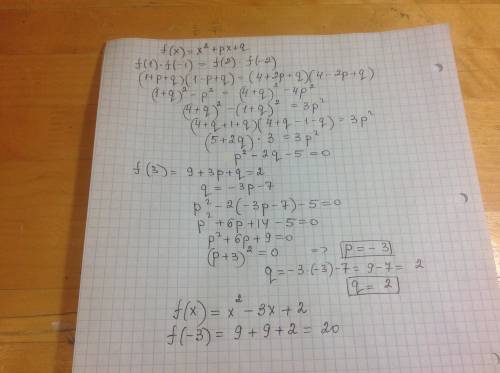 f(x) = x² + px + q
f(1)·f(-1) = f(2)·f(-2)
(1+p+q)(1-p+q) = (4+2p+q)(4-2p+q)
(1+q)² - p² = (4+q)² - 4p²
(4+q)² - (1+q)² = 3p²
(4+q+1+q)(4+q-1-q) = 3p²
(5+2q)·3 = 3p²
p² - 2q - 5 = 0
f(3) = 9+3p+q = 2
q = -3p-7
p² - 2(-3p-7) - 5 = 0
p² + 6p + 14 - 5 = 0
p² + 6p + 9 = 0
(p+3)² = 0 => p = -3
q = -3·(-3)-7 = 9-7 = 2
q = 2
f(x) = x² - 3x + 2
f(-3) = 9 + 9 + 2 = 20